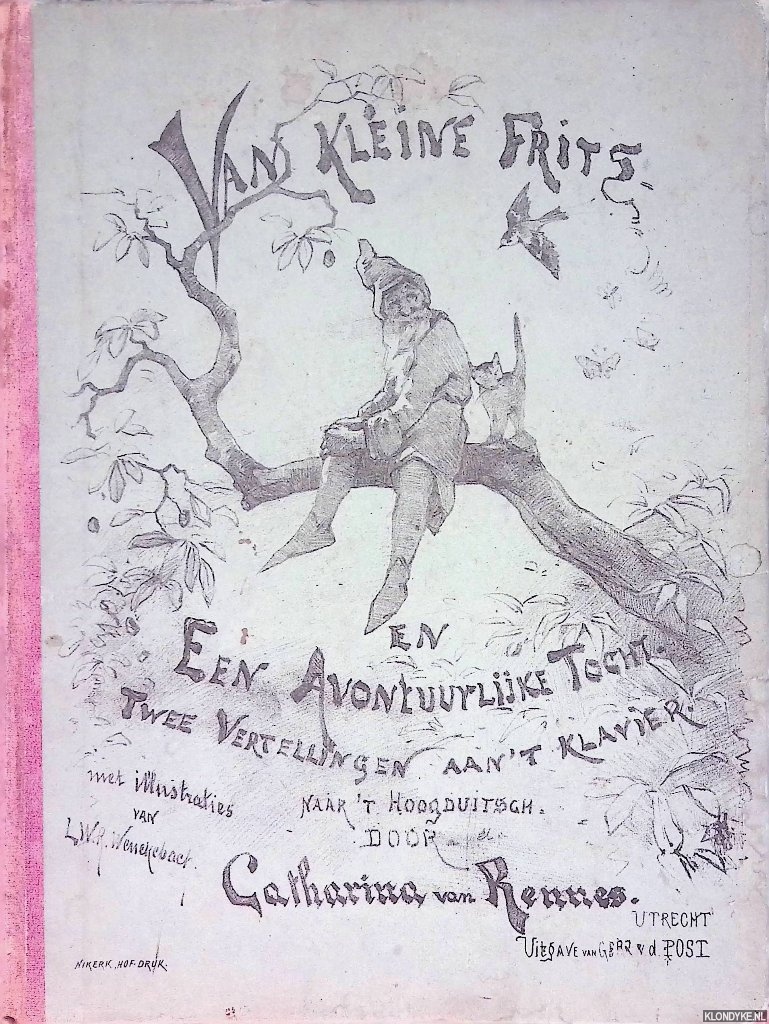 VAN KLEINE FRITS.
EN
EEN AVONTUURLIJKE TOCHT.
TWEE VERTELLINGEN AAN'T KLAVIER.
NAAR 'T HOOGDUITSCH.
DOOR
Catharina van Rennes.
met illustraties
VAN
L.W.R. Wenckebach.
UTRECHT
UITGAVE VAN GEBR v d. POST
NIKERK, HOF-DRUK.
KLONDYKE.NL